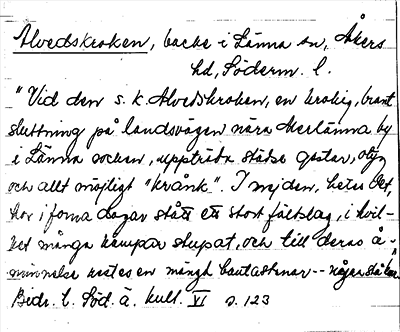 Alvedskroken, backe i Länna sn, Åkers
hd, Söderm. l.
"Vid den s. k. Alvedskroken, en krokig, brant
sluttning på landsvägen nära Merlänna by
i Länna socken, uppträda städse gastar, otyg
och allt möjligt "krånk". I nejden, heter det,
har i forna dagar stått ett stort fältslag, i hvil-
ket många kämpar stupat, och till deras å-
minnelse restes en mängd bautastenar--
Bidr. t. Söd. ä. kult. VI s. 123